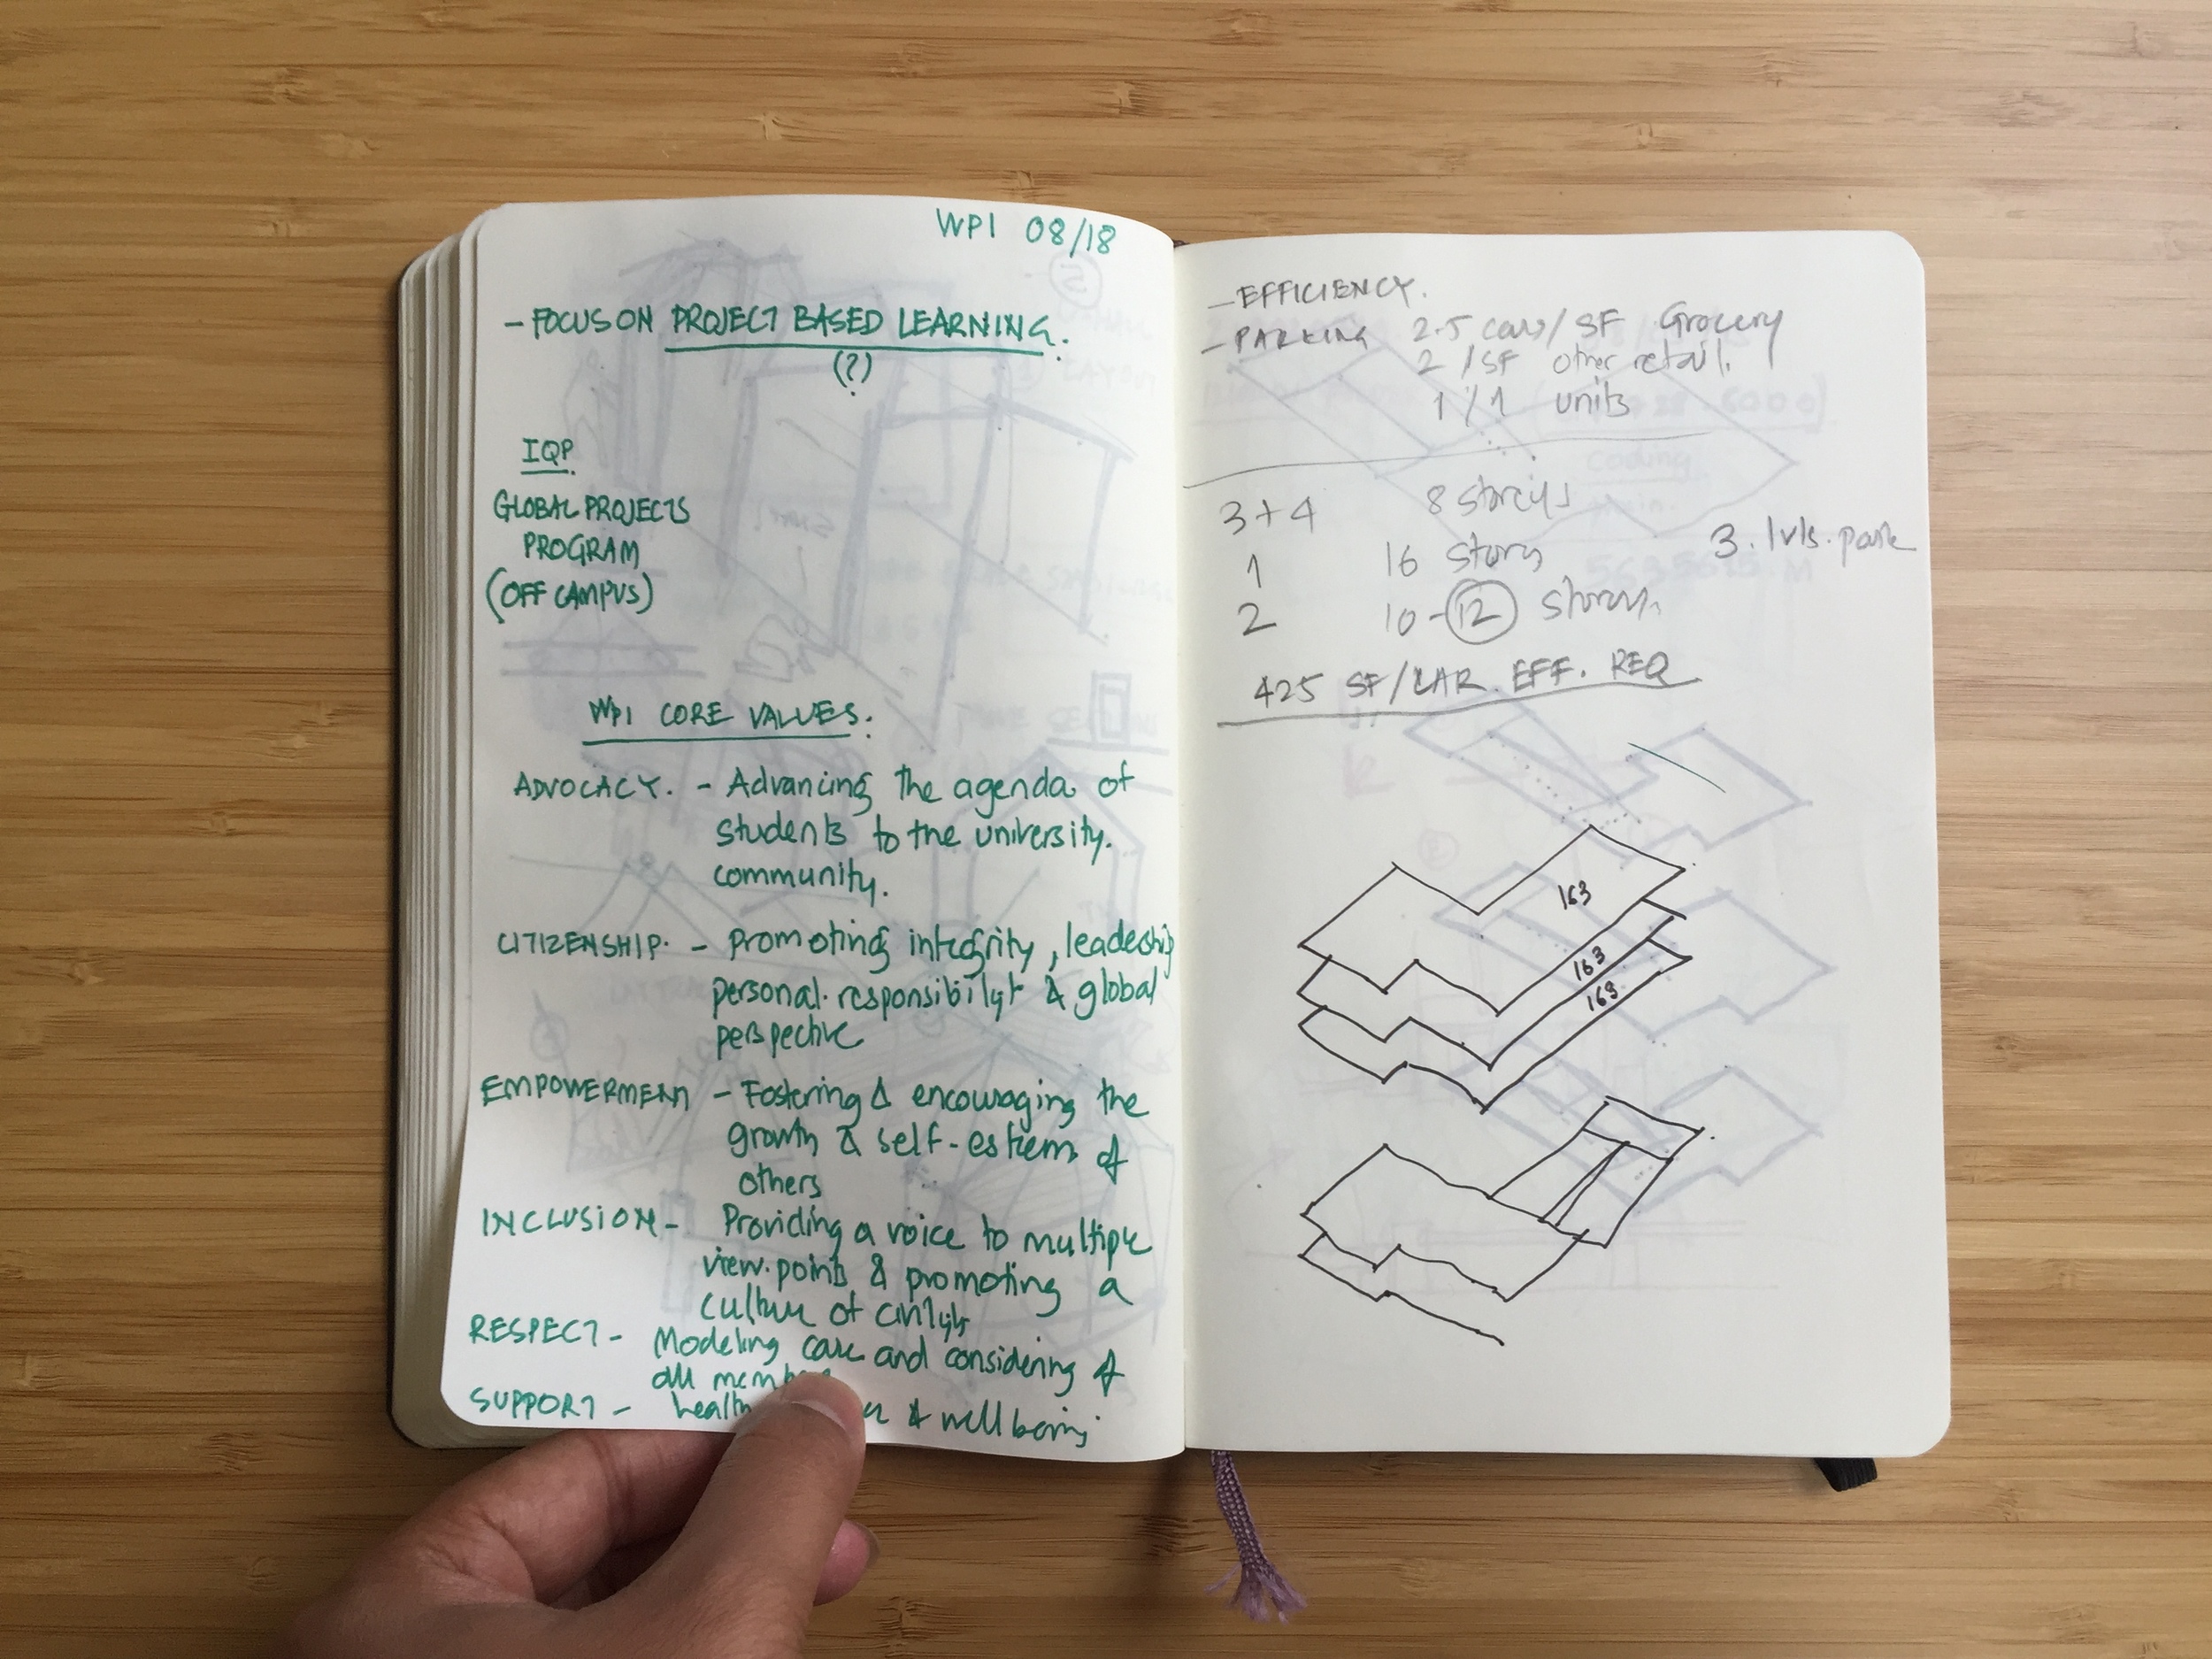 WPI 08/18
- FOCUS ON PROJECT BASED LEARNING.
(?)
IQP
GLOBAL PROJECTS
PROGRAM
(OFF CAMPUS)
WPI CORE VALUES:
ADVOCACY. - Advancing the agenda of
students to the university.
community.
CITIZENSHIP. - promoting integrity, leadership
personal responsibility & global
perspective
EMPOWERMENT - Fostering & encouraging the
growth & self-esteem of
others
INCLUSION - Providing a voice to multiple
view points & promoting a
culture of civility
RESPECT - Modeling care and considering of
all members
SUPPORT - health & well being
- EFFICIENCY.
- PARKING 2.5 cars/SF Grocery
2 /SF other retail.
1/1 units
3+4 8 storeys
1 16 story 3. lvls. park
2 10-12 storey
425 SF/CAR EFF. REQ
163
163
163